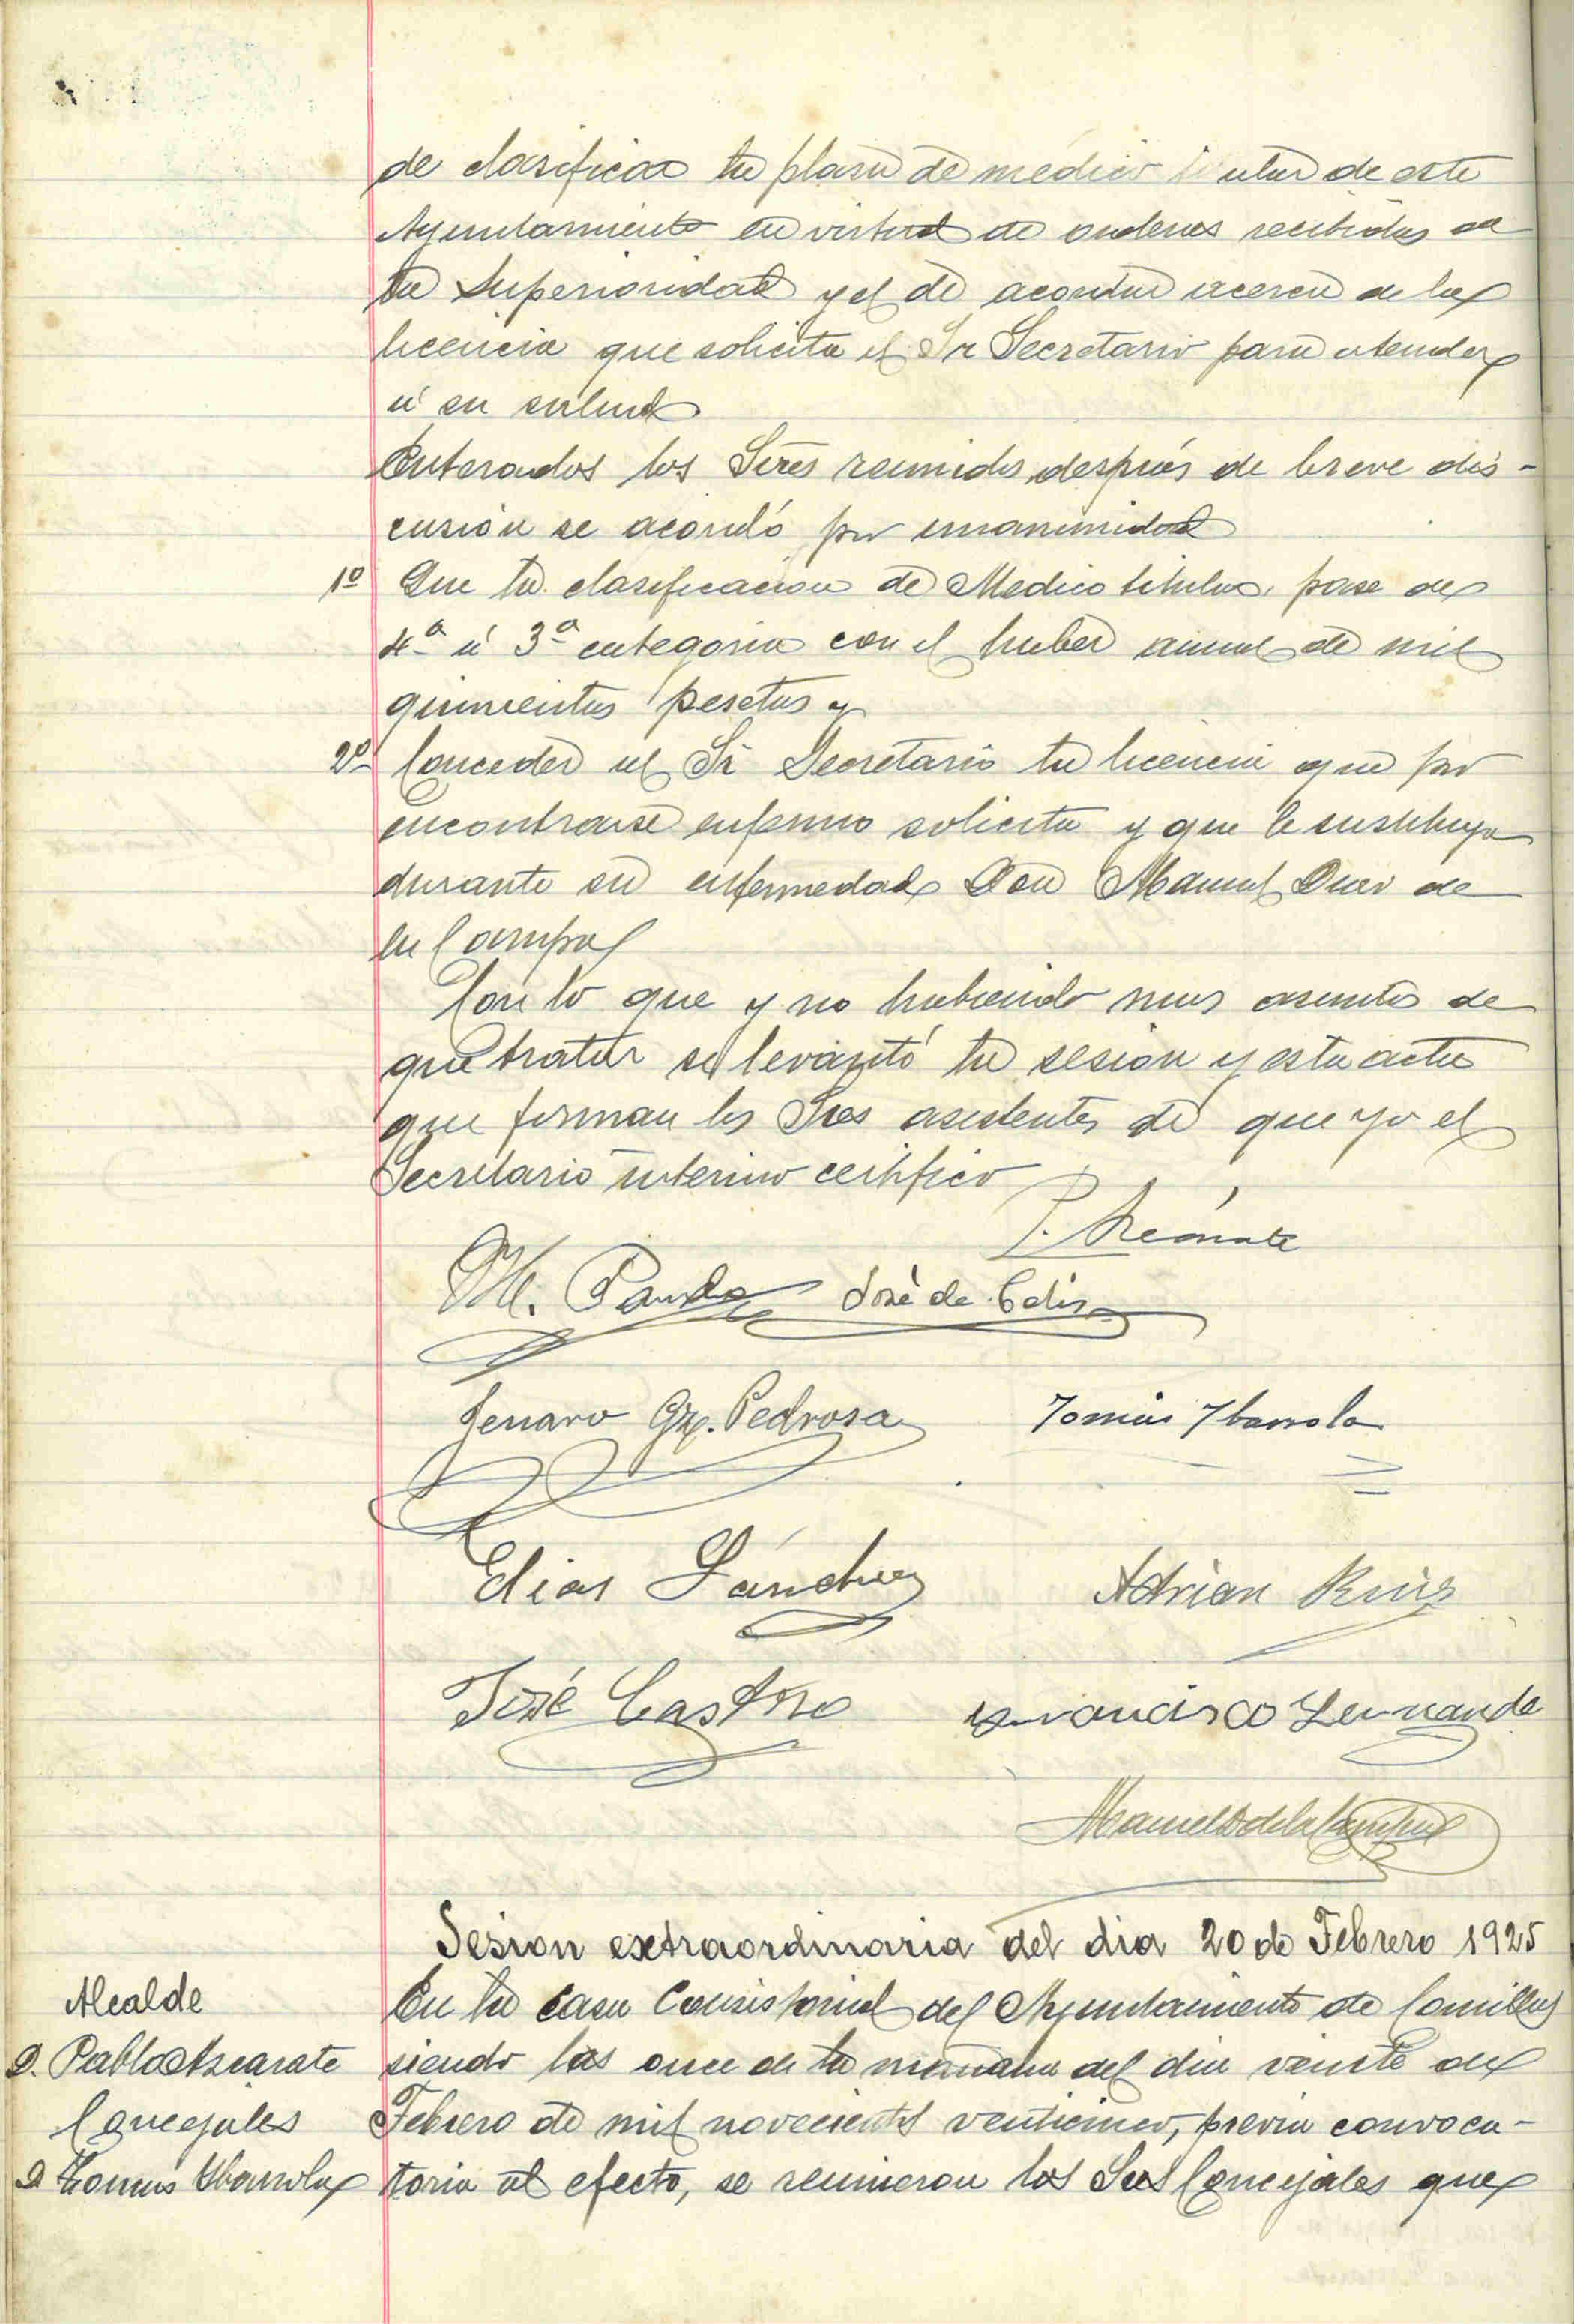 de clasificar la plaza de médico titular de este
Ayuntamiento en virtud de ordenes recibidas de
la Superioridad y el de acordar acerca de la
licencia que solicita el Sr Secretario para atender
á su salud
Enterados los Sres reunidos, después de breve dis-
cusión se acordó por unanimidad
1º Que la clasificacion de Medico titular, pase de
4ª á 3ª categoria con el haber anual de mil
quinientas pesetas y
2º Conceder al Sr Secretario la licencia que por
encontrarse enfermo solicita y que le sustituya
durante su enfermedad Don Manuel de
la Campa
Con lo que y no habiendo mas asuntos de
que tratar se levantó la sesion y esta acta
que firman los Sres asistentes de que yo el
Secretario interino certifico
P.
M. José de Celis
Jenaro Gz. Pedrosa Tomás Ybarrola
Elias Sánchez Adrian Ruiz
José Castro Francisco Fernande
Manuel D de la Campa
Sesion extraordinaria del dia 20 de Febrero 1925
Alcalde
D. Pablo Azcarate
Concejales
D Tomas Ybarrola
En la casa Consistorial del Ayuntamiento de Comillas
siendo las once de la mañana del dia veinte de
Febrero de mil novecientos venticinco, previa convoca-
toria al efecto, se reunieron los Sres Concejales que